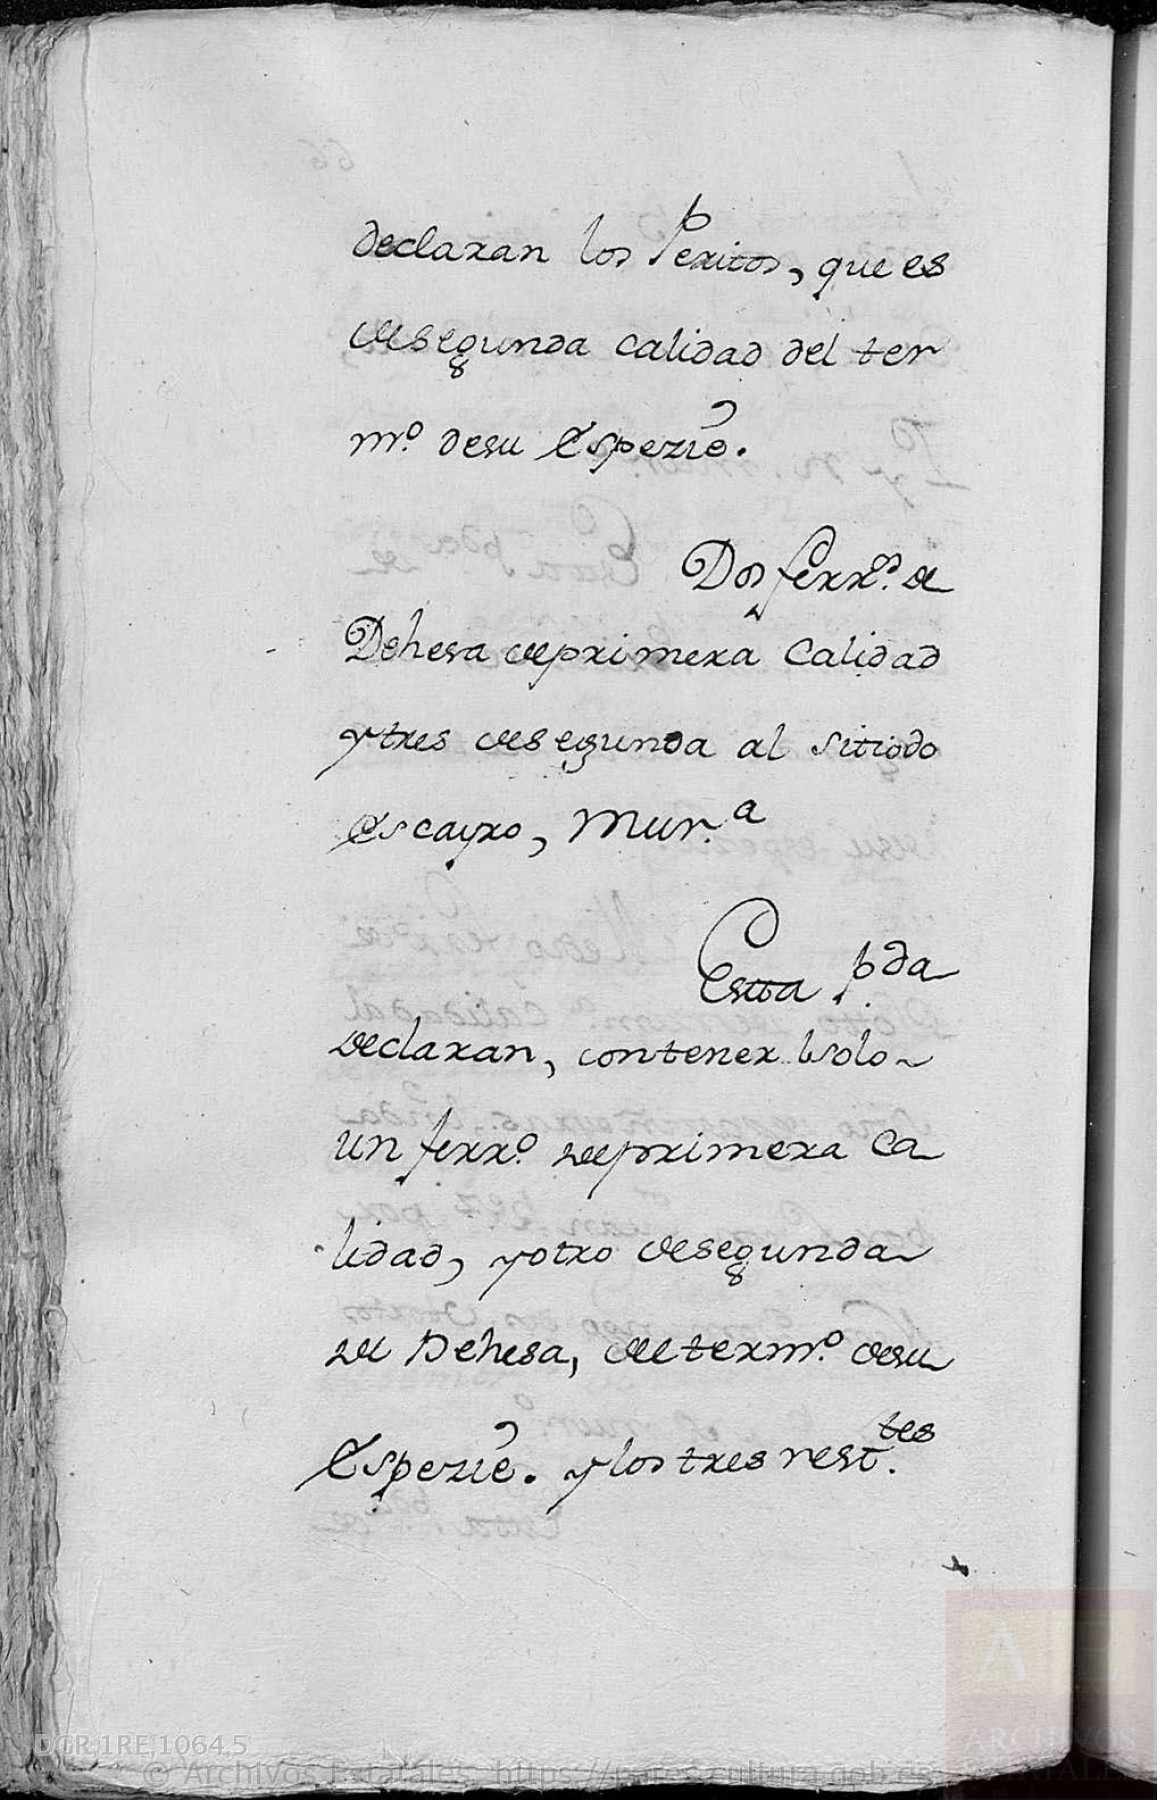 declaran los Peritos, que es
desegunda calidad del ter
mº. desu Espezie.
Dos ferrᵒˢ. de
Dehesa deprimera Calidad
ytres desegunda al sitiodo
Escayro, Mur.ª
Estta p.ᵈᵃ
declaran, contener solo
un ferrº. deprimera Ca
lidad, yotro desegunda
de Dehesa, de termº. desu
Espezie. y los tres restt.ᵗᵉˢ
DGR,1RE,1064,5
© Archivos Estatales, https://pares.cultura.gob.es